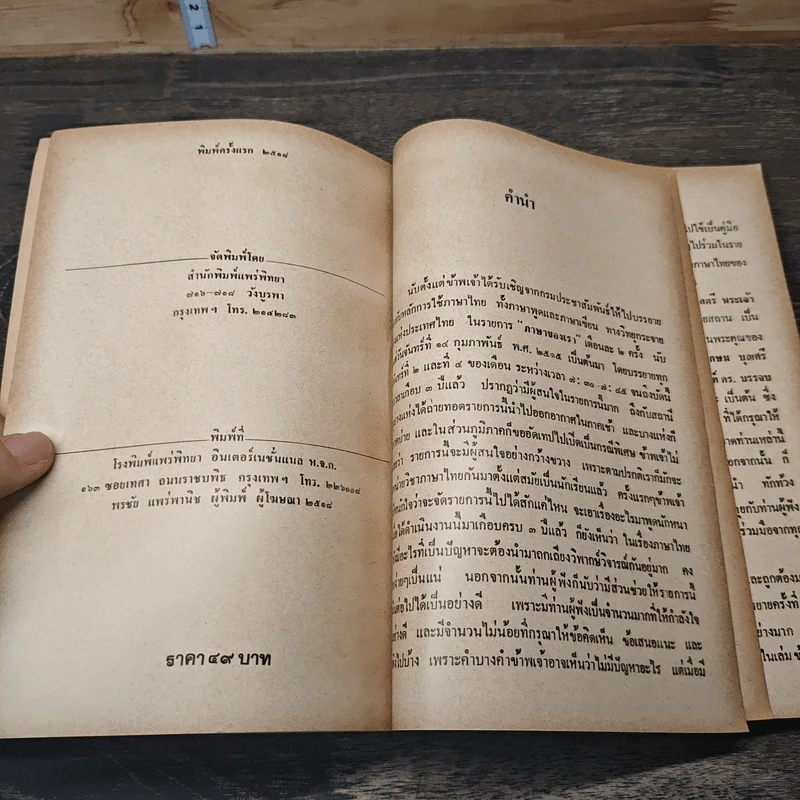 2 1
พิมพ์ครั้งแรก ๒๕๑๘
จัดพิมพ์โดย
สำนักพิมพ์แพร่พิทยา
๗๑๖—๗๑๘ วังบูรพา
กรุงเทพฯ โทร. ๒๑๔๒๘๓
พิมพ์ที่
โรงพิมพ์แพร่พิทยา อินเตอร์เนชั่นแนล ห.จ.ก.
๑๖๓ ซอยเทศา ถนนราชบพิธ กรุงเทพฯ โทร. ๒๒๖๐๐๘
พรชัย แพร่พานิช ผู้พิมพ์ ผู้โฆษณา ๒๕๑๘
ราคา ๔๙ บาท
คำนำ
นับตั้งแต่ข้าพเจ้าได้รับเชิญจากกรมประชาสัมพันธ์ให้ไปบรรยาย
หลักการใช้ภาษาไทย ทั้งภาษาพูดและภาษาเขียน ทางวิทยุกระจาย
แห่งประเทศไทย ในรายการ "ภาษาของเรา" เดือนละ ๒ ครั้ง นับ
วันจันทร์ที่ ๑๔ กุมภาพันธ์ พ.ศ. ๒๕๑๕ เป็นต้นมา โดยบรรยายทุก
ที่ ๒ และที่ ๔ ของเดือน ระหว่างเวลา ๗: ๓๐-๗: ๔๕ จนถึงบัดนี้
เวลาเกือบ ๓ ปีแล้ว ปรากฏว่ามีผู้สนใจในรายการนี้มาก ถึงกับสถานี
บางแห่งได้ถ่ายทอดรายการนี้นำไปออกอากาศในภาคเช้า และบางแห่งก็
และในส่วนภูมิภาคก็ขออัดเทปไปเปิดเป็นกรณีพิเศษ ข้าพเจ้าไม่
ว่า รายการนี้จะมีผู้สนใจอย่างกว้างขวาง เพราะตามปรกติเราก็มักจะ
วิชาภาษาไทยกันมาตั้งแต่สมัยเป็นนักเรียนแล้ว ครั้งแรกๆข้าพเจ้า
หนักใจว่าจะจัดรายการนี้ไปได้สักแค่ไหน จะเอาเรื่องอะไรมาพูดนักหนา
ได้ดำเนินงานนี้มาเกือบครบ ๓ ปีแล้ว ก็ยังเห็นว่า ในเรื่องภาษาไทย
มีอะไรที่เป็นปัญหาจะต้องนำมาถกเถียงวิพากษ์วิจารณ์กันอยู่มาก คง
ง่ายๆเป็นแน่ นอกจากนั้นท่านผู้ฟังก็นับว่ามีส่วนช่วยให้รายการนี้
ต่อไปได้เป็นอย่างดี เพราะมีท่านผู้ฟังเป็นจำนวนมากที่ให้กำลังใจ
อย่างดี และมีจำนวนไม่น้อยที่กรุณาให้ข้อคิดเห็น ข้อเสนอแนะ และ
ไปบ้าง เพราะคำบางคำข้าพเจ้าอาจเห็นว่าไม่มีปัญหาอะไร แต่เมื่อมี
ไปใช้เป็นคู่มือ
ไปร่วมในราย
ภาษาไทยของ
สตรี พระเจ้า
เป็น
พระคุณของ
กษม บุญศรี
ดร. บรรจบ
เป็นต้น ซึ่ง
ที่ได้กรุณาให้
ท่านเหล่านี้
นอกจากนั้น ก็
ทักท้วง
กับท่านผู้ฟัง
ร่วมมือจากทุก
และถูกต้อง
ครั้งที่
อย่างมาก
ในเล่ม